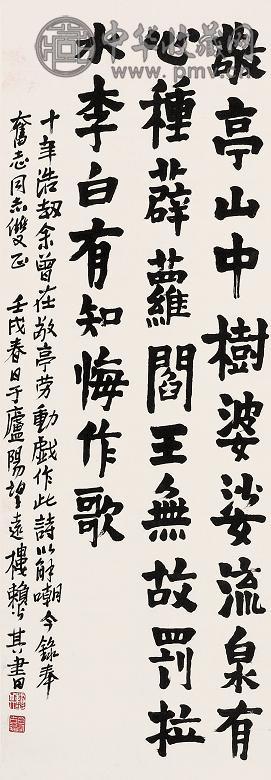 中华收藏网
www.pmv.cn
敬亭山中樹婆娑流泉有
心種薜蘿閻王無故罰拉
水李白有知悔作歌
十年浩劫余曾在敬亭劳動戯作此詩以解嘲今錄奉
奮志同志雙正 壬戌春日于廬陽望遠樓賴少其書